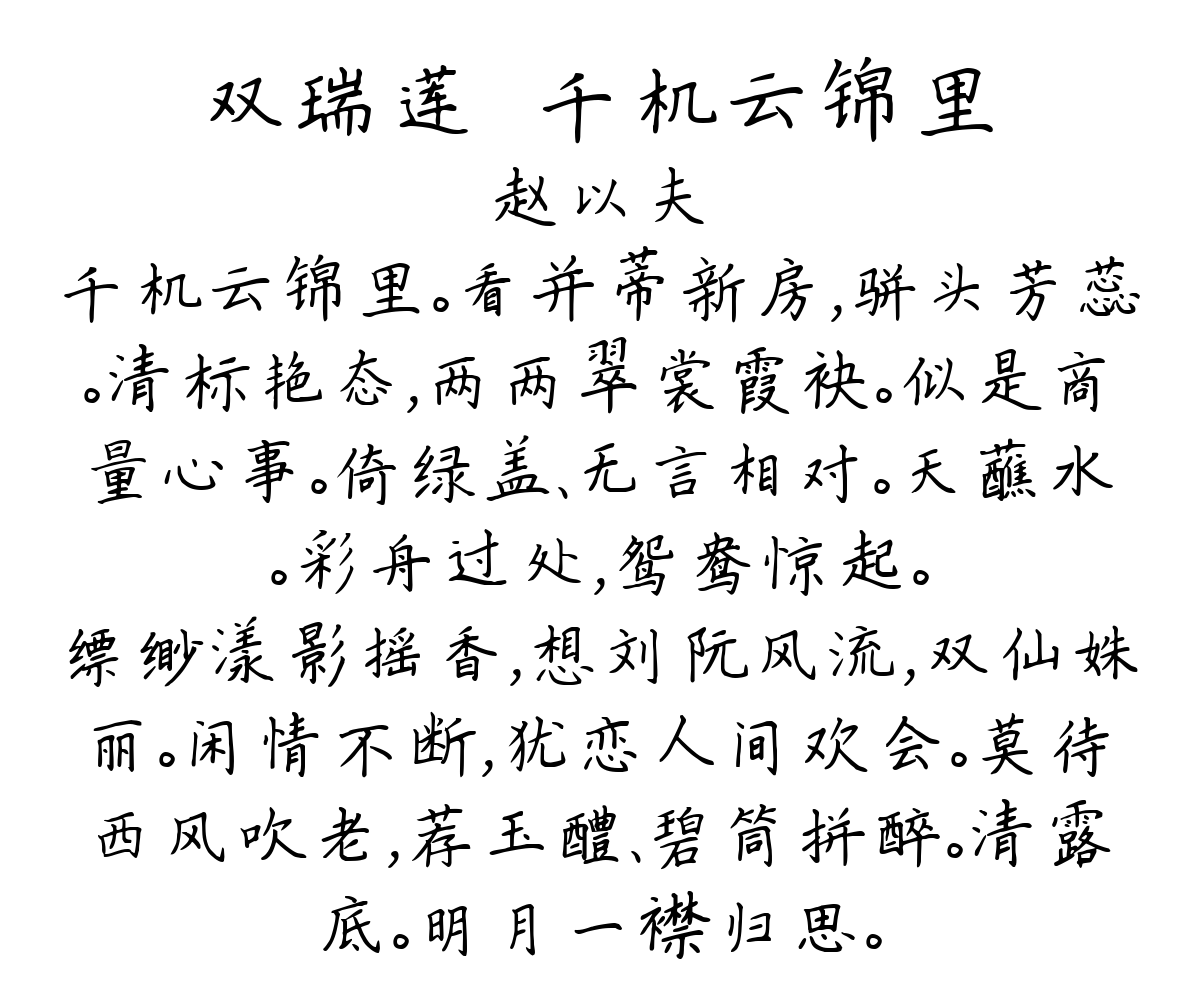 双瑞莲 千机云锦里
赵以夫
千机云锦里。看并蒂新房,骈头芳蕊
。清标艳态,两两翠裳霞袂。似是商
量心事。倚绿盖、无言相对。天蘸水
。彩舟过处,鸳鸯惊起。
缥缈漾影摇香,想刘阮风流,双仙姝
丽。闲情不断,犹恋人间欢会。莫待
西风吹老,荐玉醴、碧筒拼醉。清露
底。明月一襟归思。